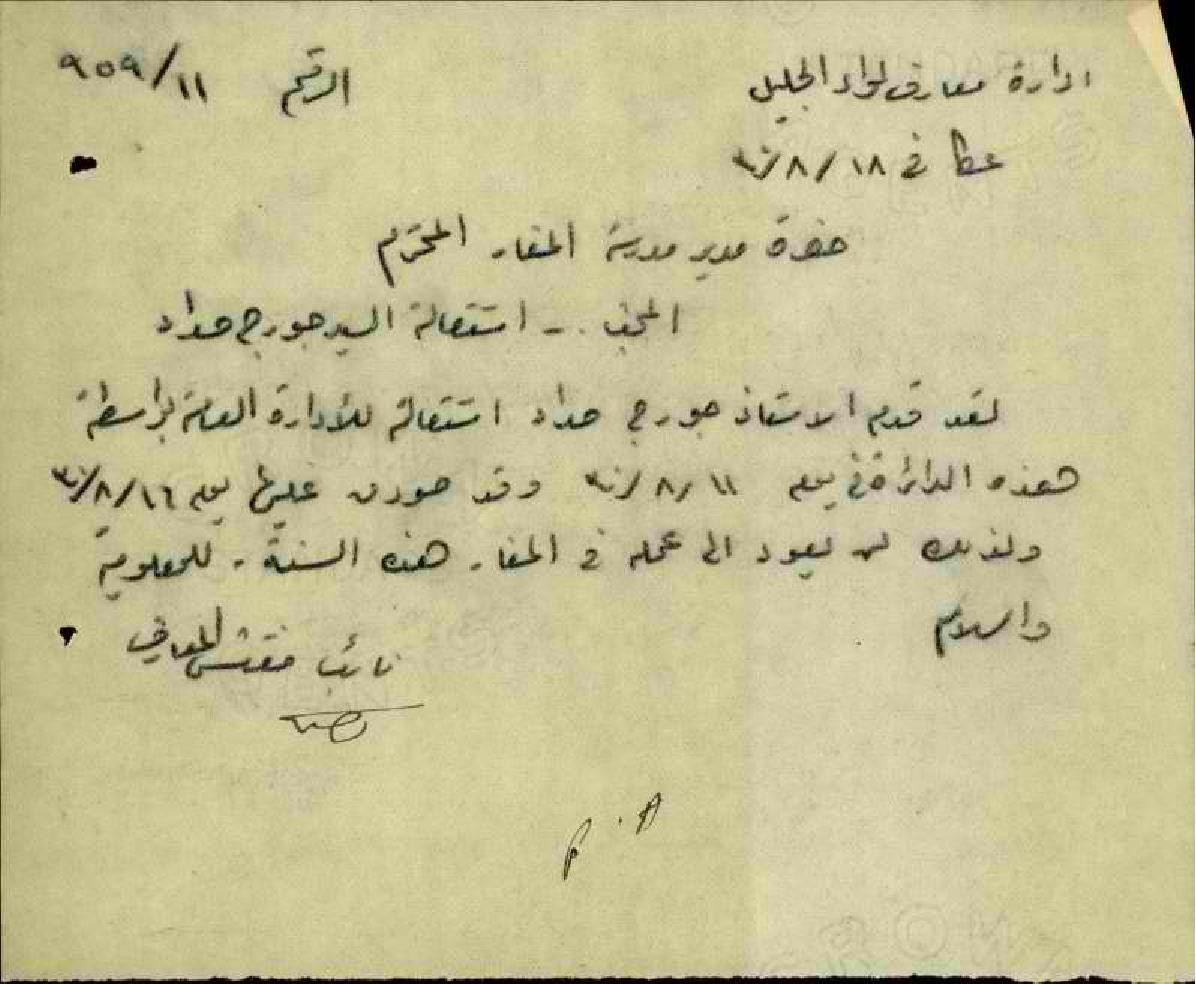 ادارة معارف لواء الجليل
الرقم ٩٥٩/١١
عكا في ١٨/٨/
حضرة مدير مدرسة المغار المحترم
المبحث .- استقالة السيد جورج حداد
لقد قدم الاستاذ جورج حداد استقالته للأدارة العامة بواسطة
هذه الدائرة في يوم ١١/٨/ وقد صودق عليها يوم ١٦/٨/
ولذلك لن يعود الى عمله في المغار هذه السنة . للمعلومية
والسلام
نائب مفتش المعارف
P.A